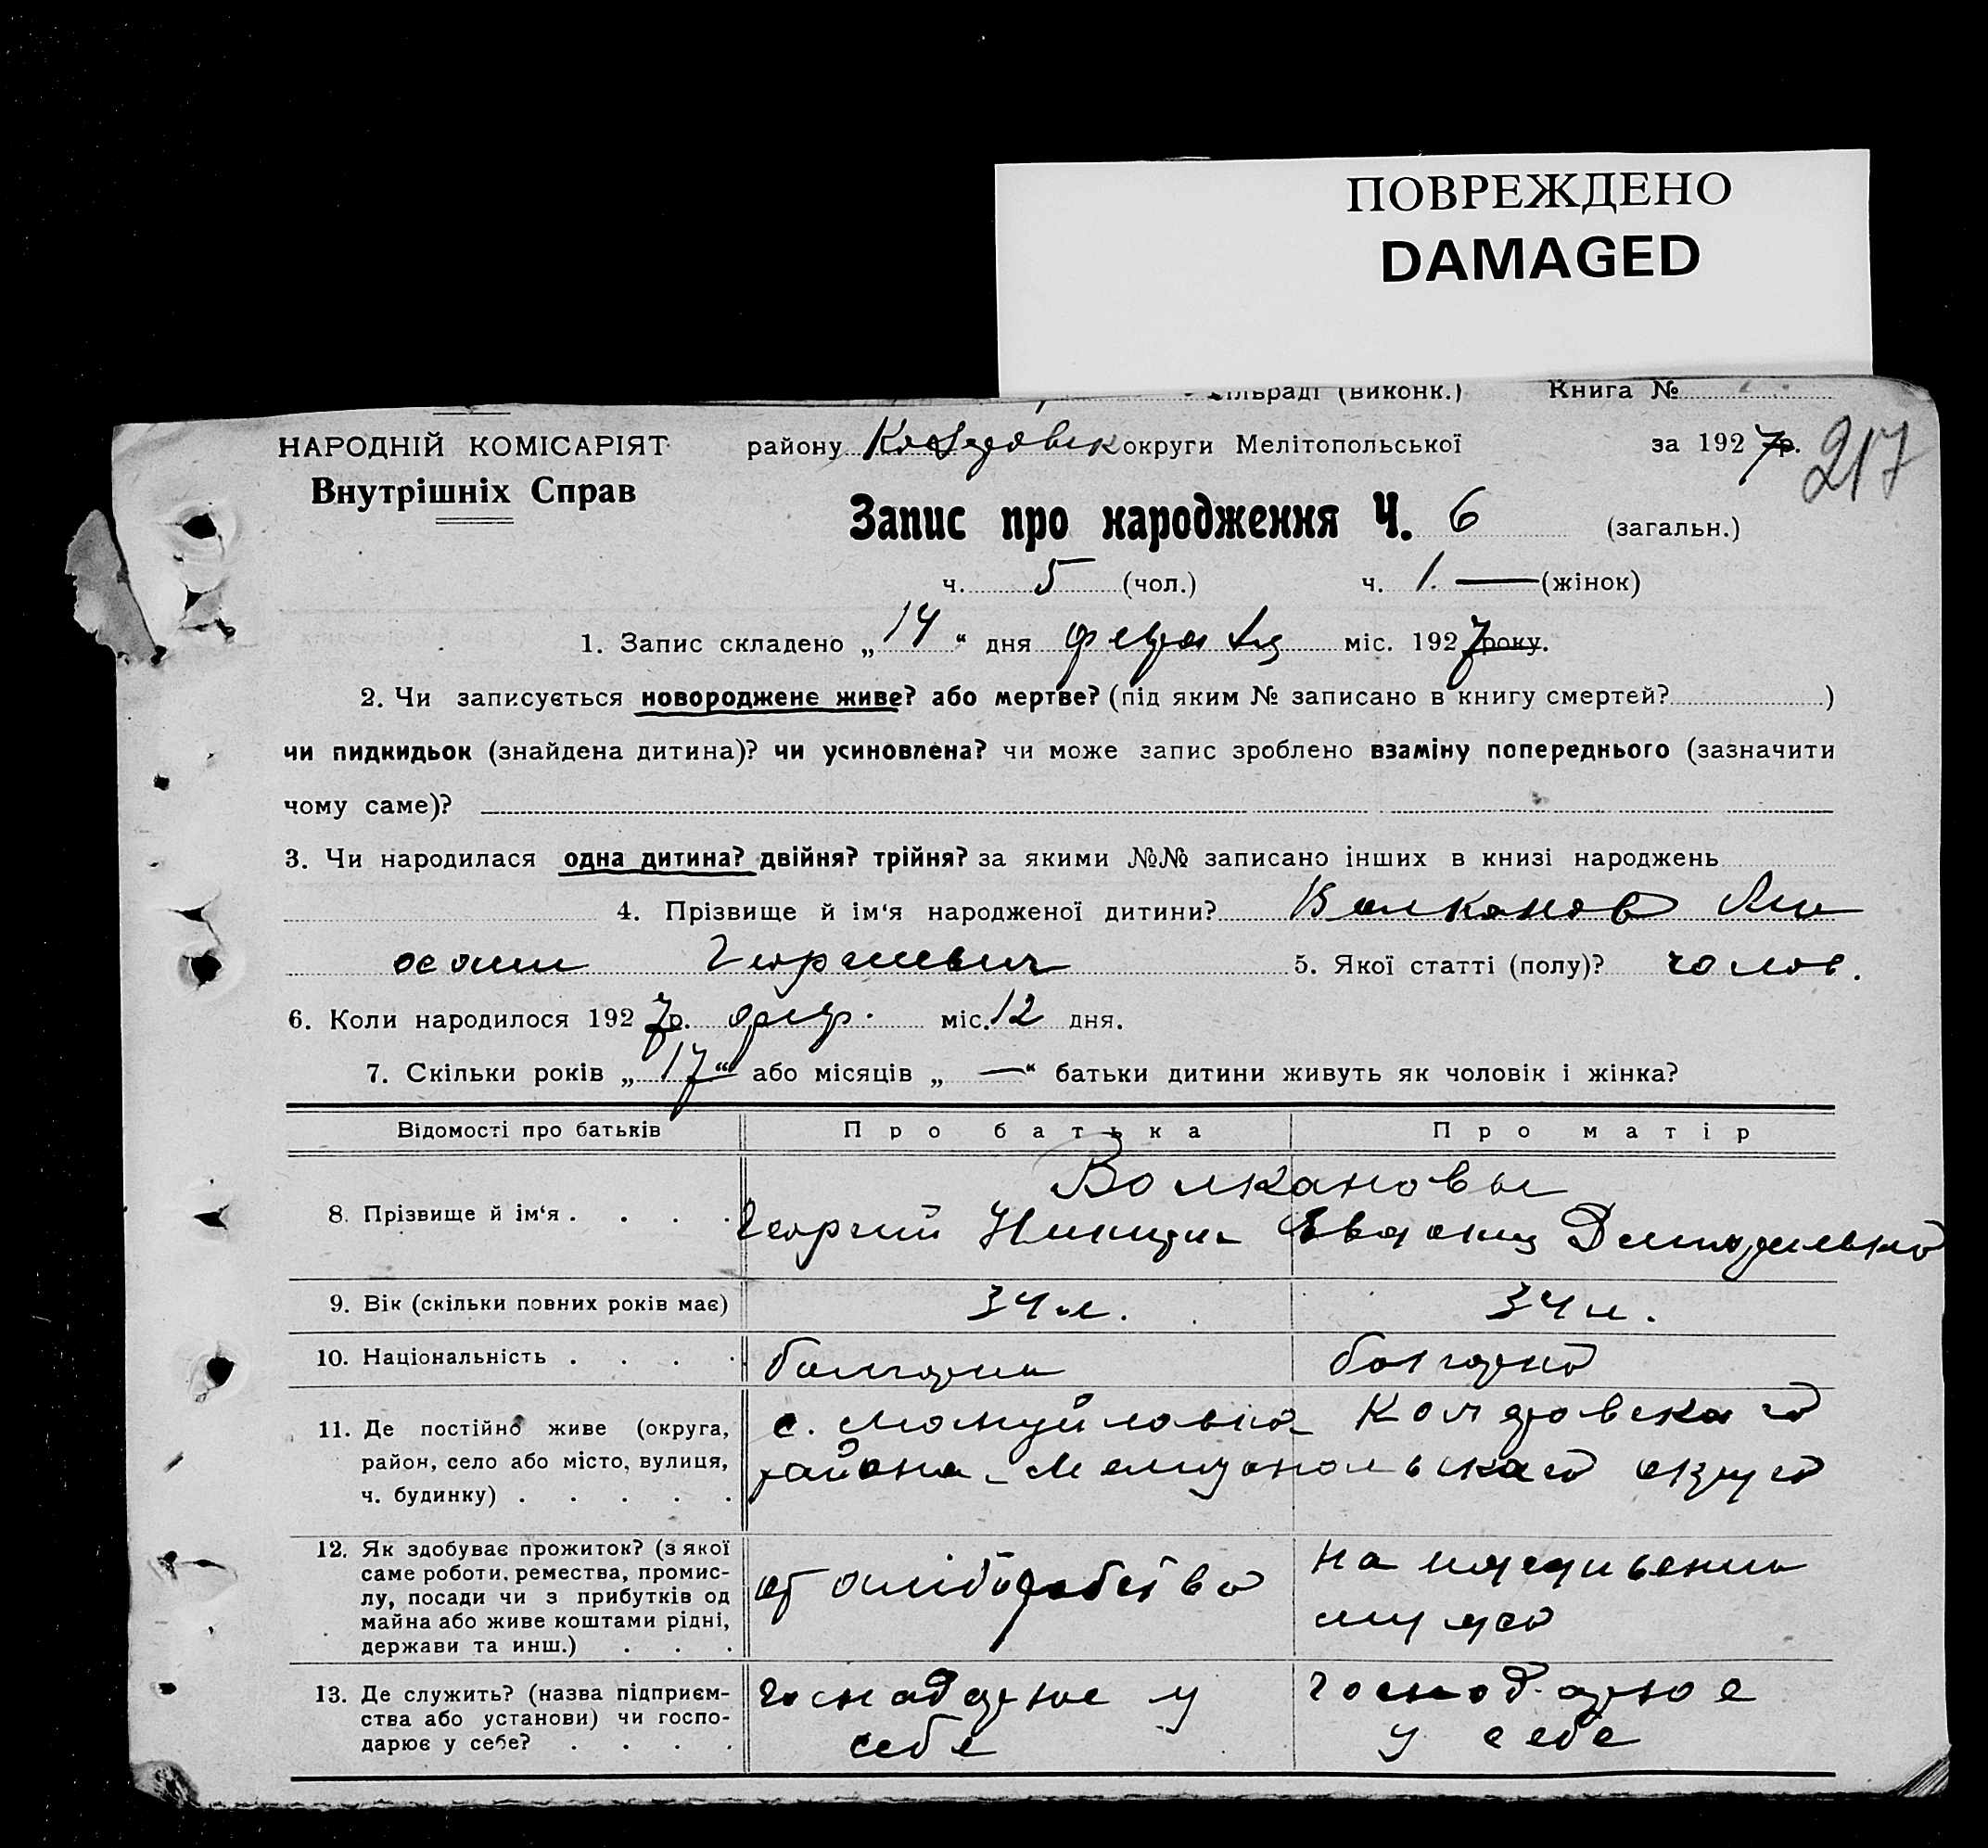 ПОВРЕЖДЕНО
DAMAGED
сільраді (виконк.) Книга №
НАРОДНІЙ КОМІСАРІЯТ району округи Мелітопольської за 1927р. 217
Внутрішніх Справ
Запис про народження Ч. 6 (загальн.)
ч. 5 (чол.) ч. 1. — (жінок)
1. Запис складено „14“ дня міс. 1927 року.
2. Чи записується новороджене живе? або мертве? (під яким № записано в книгу смертей? )
чи пидкидьок (знайдена дитина)? чи усиновлена? чи може запис зроблено взаміну попереднього (зазначити
чому саме)?
3. Чи народилася одна дитина? двійня? трійня? за якими №№ записано інших в книзі народжень
4. Прізвище й ім‘я народженої дитини? Волканов
Георгиевич 5. Якої статті (полу)? чолов.
6. Коли народилося 1927р. февр. міс. 12 дня.
7. Скільки років „17“ або місяців „—“ батьки дитини живуть як чоловік і жінка?
Відомості про батьків Про батька Про матір
Волкановы
8. Прізвище й ім‘я . . . . Георгий
9. Вік (скільки повних років має) 34 л. 34 л.
10. Національність . . . . болгарин болгарка
11. Де постійно живе (округа, с. Мануйловка
район, село або місто, вулиця, района Мелитопольского округа
ч. будинку) . . . . .
12. Як здобуває прожиток? (з якої
саме роботи, ремества, промис-
лу, посади чи з прибутків од
майна або живе коштами рідні,
держави та инш.) . . . на
13. Де служить? (назва підприєм- господарює у господарює
ства або установи) чи госпо- себе у себе
дарює у себе? . . . .